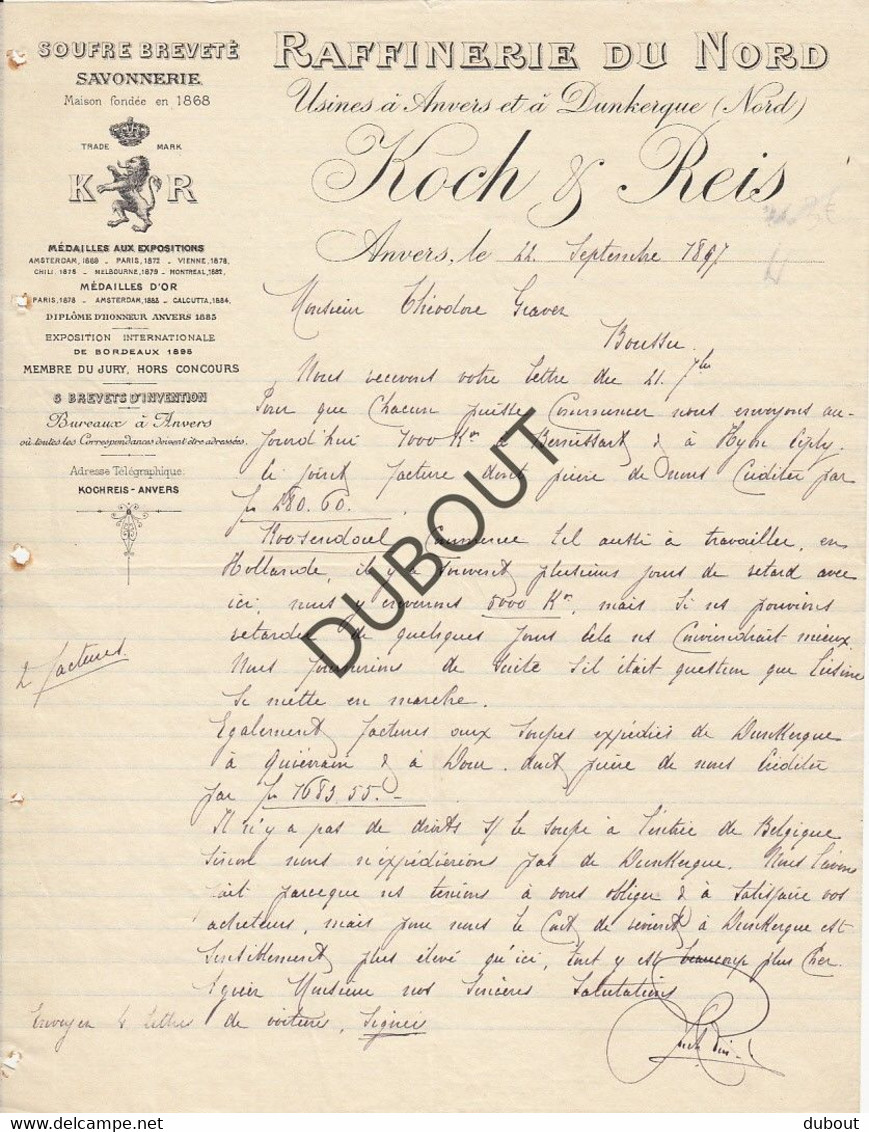 SOUFRE BREVETÉ
SAVONNERIE
Maison fondée en 1868
TRADE MARK
K R
MÉDAILLES AUX EXPOSITIONS
AMSTERDAM, 1869 - PARIS, 1872 - VIENNE, 1878,
CHILI, 1875 - MELBOURNE, 1879 - MONTREAL, 1882,
MÉDAILLES D'OR
PARIS, 1878 - AMSTERDAM, 1883 - CALCUTTA, 1884,
DIPLÔME D'HONNEUR ANVERS 1885
EXPOSITION INTERNATIONALE
DE BORDEAUX 1895
MEMBRE DU JURY, HORS CONCOURS
6 BREVETS D'INVENTION
Bureaux à Anvers
où toutes les Correspondances doivent être adressées.
Adresse Télégraphique:
KOCHREIS - ANVERS
RAFFINERIE DU NORD
Usines à Anvers et à Dunkerque (Nord)
Koch & Reis
Anvers, le 22 Septembre 1897
Monsieur Théodore Graver
Boussu
Nous recevons votre lettre du 21. 7bre
Pour que chacun puisse commencer nous envoyons au-
jourd'hui 1000 Kos à Bernissart & à Hyon Ciply
Ci joint facture dont prière de nous créditer par
fr 280.60.
Roosendael commence t'il aussi à travailler, en
Hollande, il y a souvent plusieurs jours de retard avec
ici, nous y enverrons 5000 Kos, mais si ns pouvions
retarder de quelques jours cela ns conviendrait mieux.
Nous fournirions de suite s'il était question que l'usine
se mette en marche.
2 factures
Egalement factures aux soufres expédiés de Dunkerque
à Quiévrain & à Dour. dont prière de nous créditer
par fr 1683.55.-
Il n'y a pas de droits s/ le soufre à l'entrée de Belgique
sinon nous n'expédierions pas de Dunkerque. Nous l'avons
fait parceque ns tenions à vous obliger & à satisfaire vos
acheteurs, mais pour nous le coût de revient à Dunkerque est
sensiblement plus élevé qu'ici, tout y est beaucoup plus cher.
Agréer Monsieur nos sincères salutations
Envoyer 4 lettres de voiture, signées
Koch Reis
DUBOUT
dubout